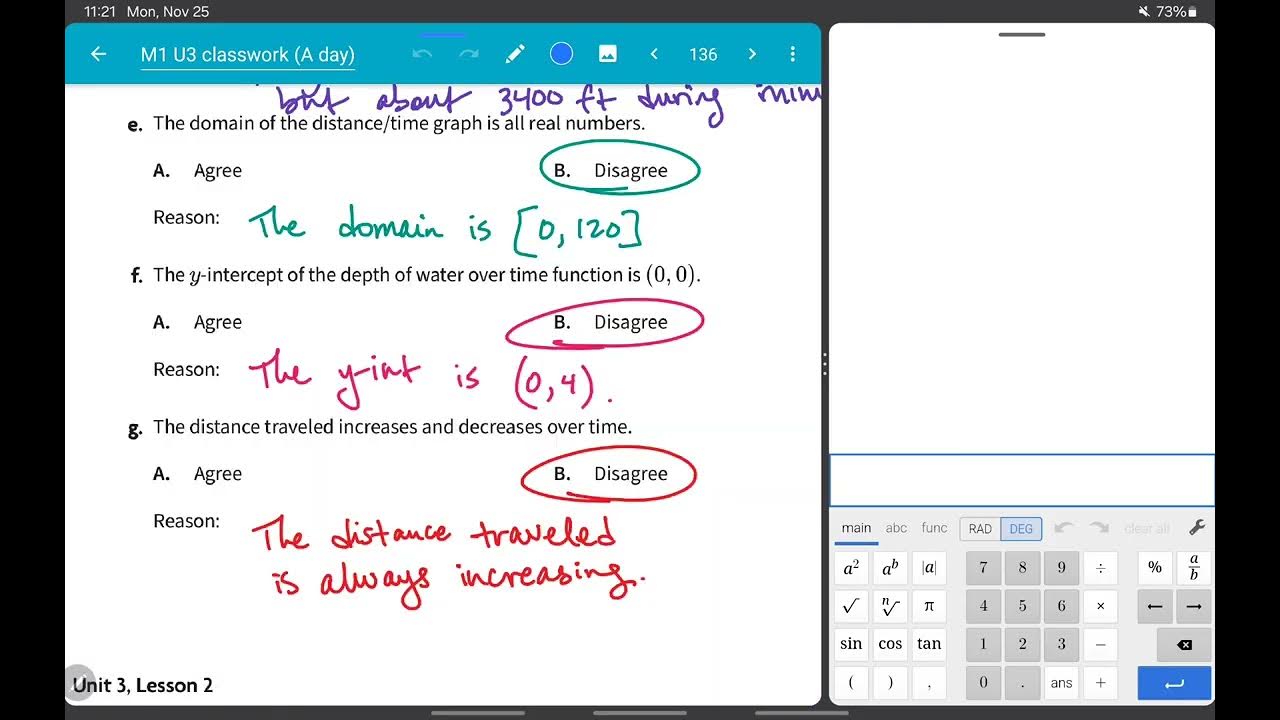 11:21 Mon, Nov 25
73%
← M1 U3 classwork (A day) < 136 >
but about 3400 ft during
e. The domain of the distance/time graph is all real numbers.
A. Agree B. Disagree
Reason: The domain is [0, 120]
f. The y-intercept of the depth of water over time function is (0, 0).
A. Agree B. Disagree
Reason: The y-int is (0, 4).
g. The distance traveled increases and decreases over time.
A. Agree B. Disagree
Reason: The distance traveled
is always increasing.
Unit 3, Lesson 2
main abc func RAD DEG clear all
a² aᵇ |a| 7 8 9 ÷ % a/b
√ ⁿ√ π 4 5 6 × ← →
sin cos tan 1 2 3 −
( ) , 0 . ans +